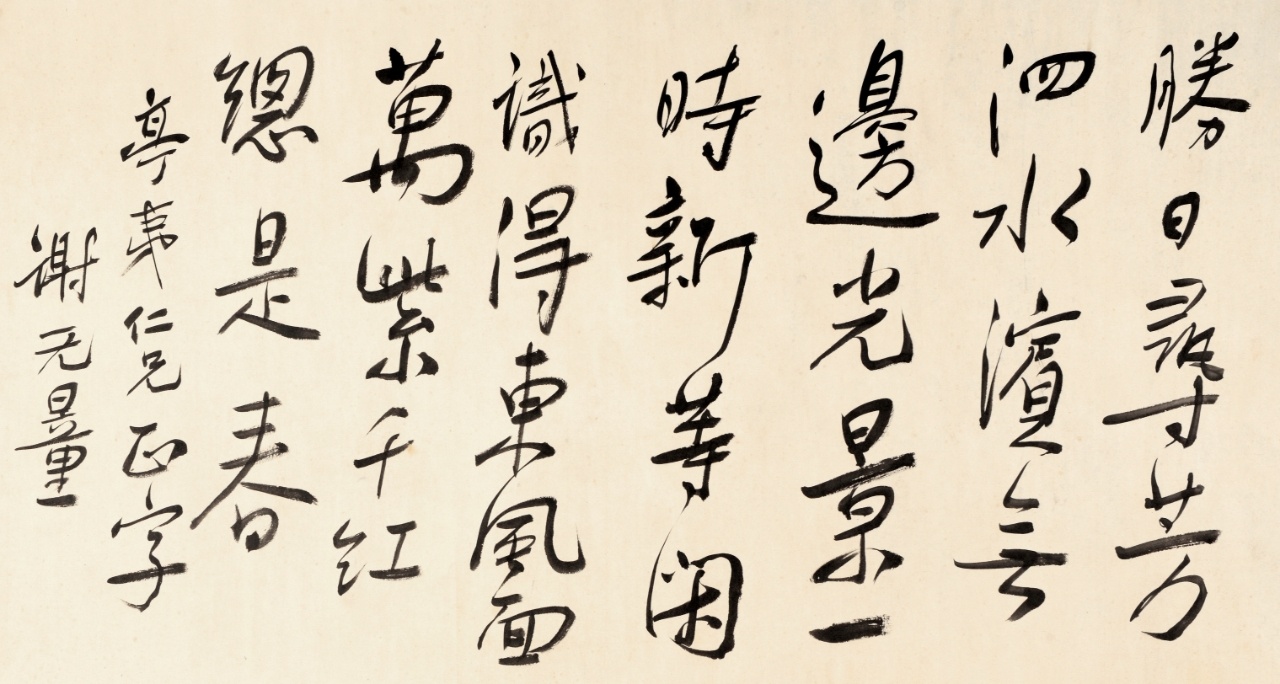 勝日尋芳
泗水濱無
邊光景一
時新等閑
識得東風面
萬紫千红
總是春
亭夷仁兄正字
谢无量